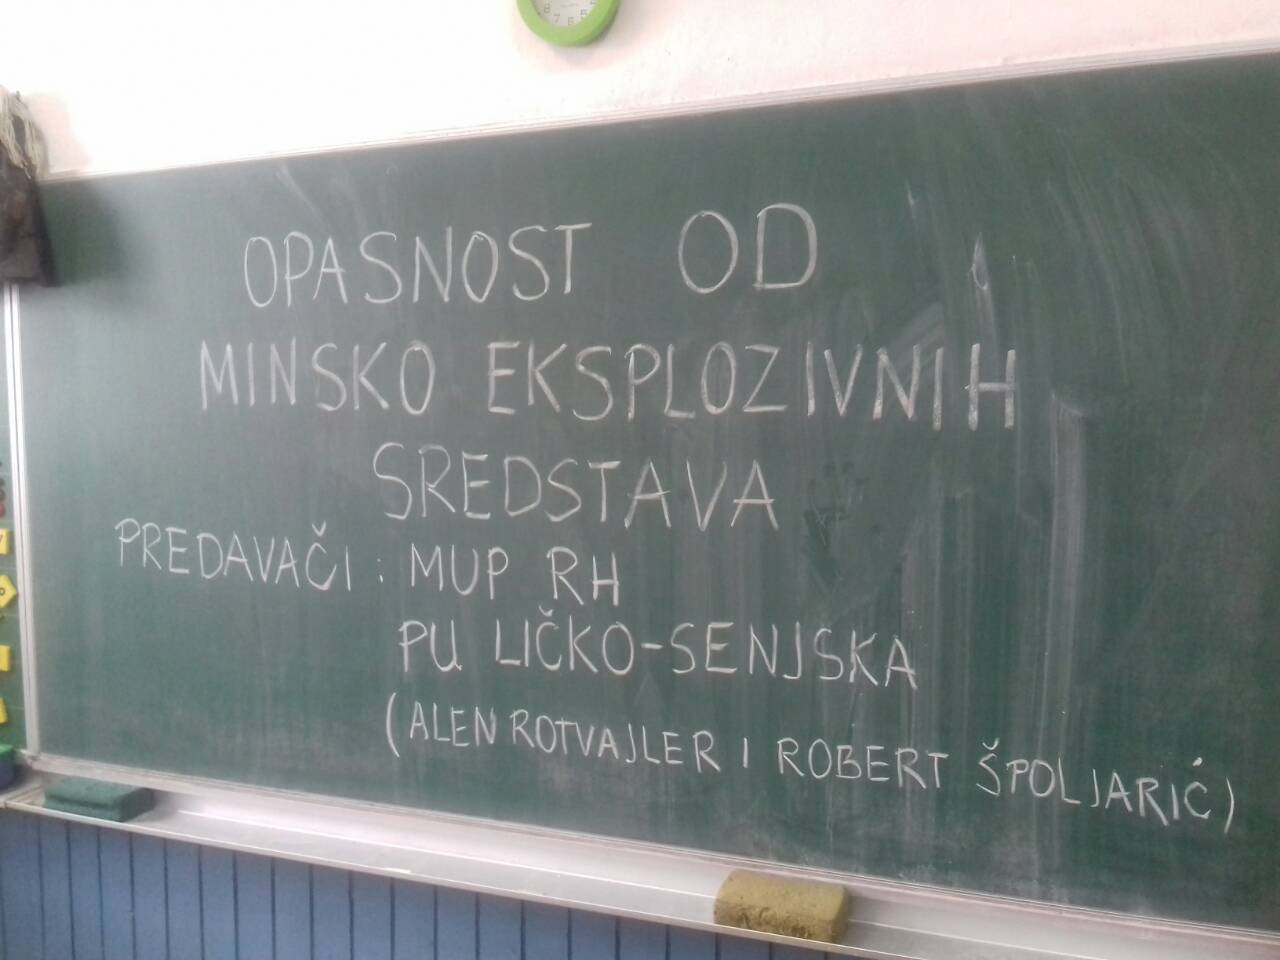 OPASNOST OD
MINSKO EKSPLOZIVNIH
SREDSTAVA
PREDAVAČI : MUP RH
PU LIČKO-SENJSKA
(ALEN ROTVAJLER I ROBERT ŠPOLJARIĆ)